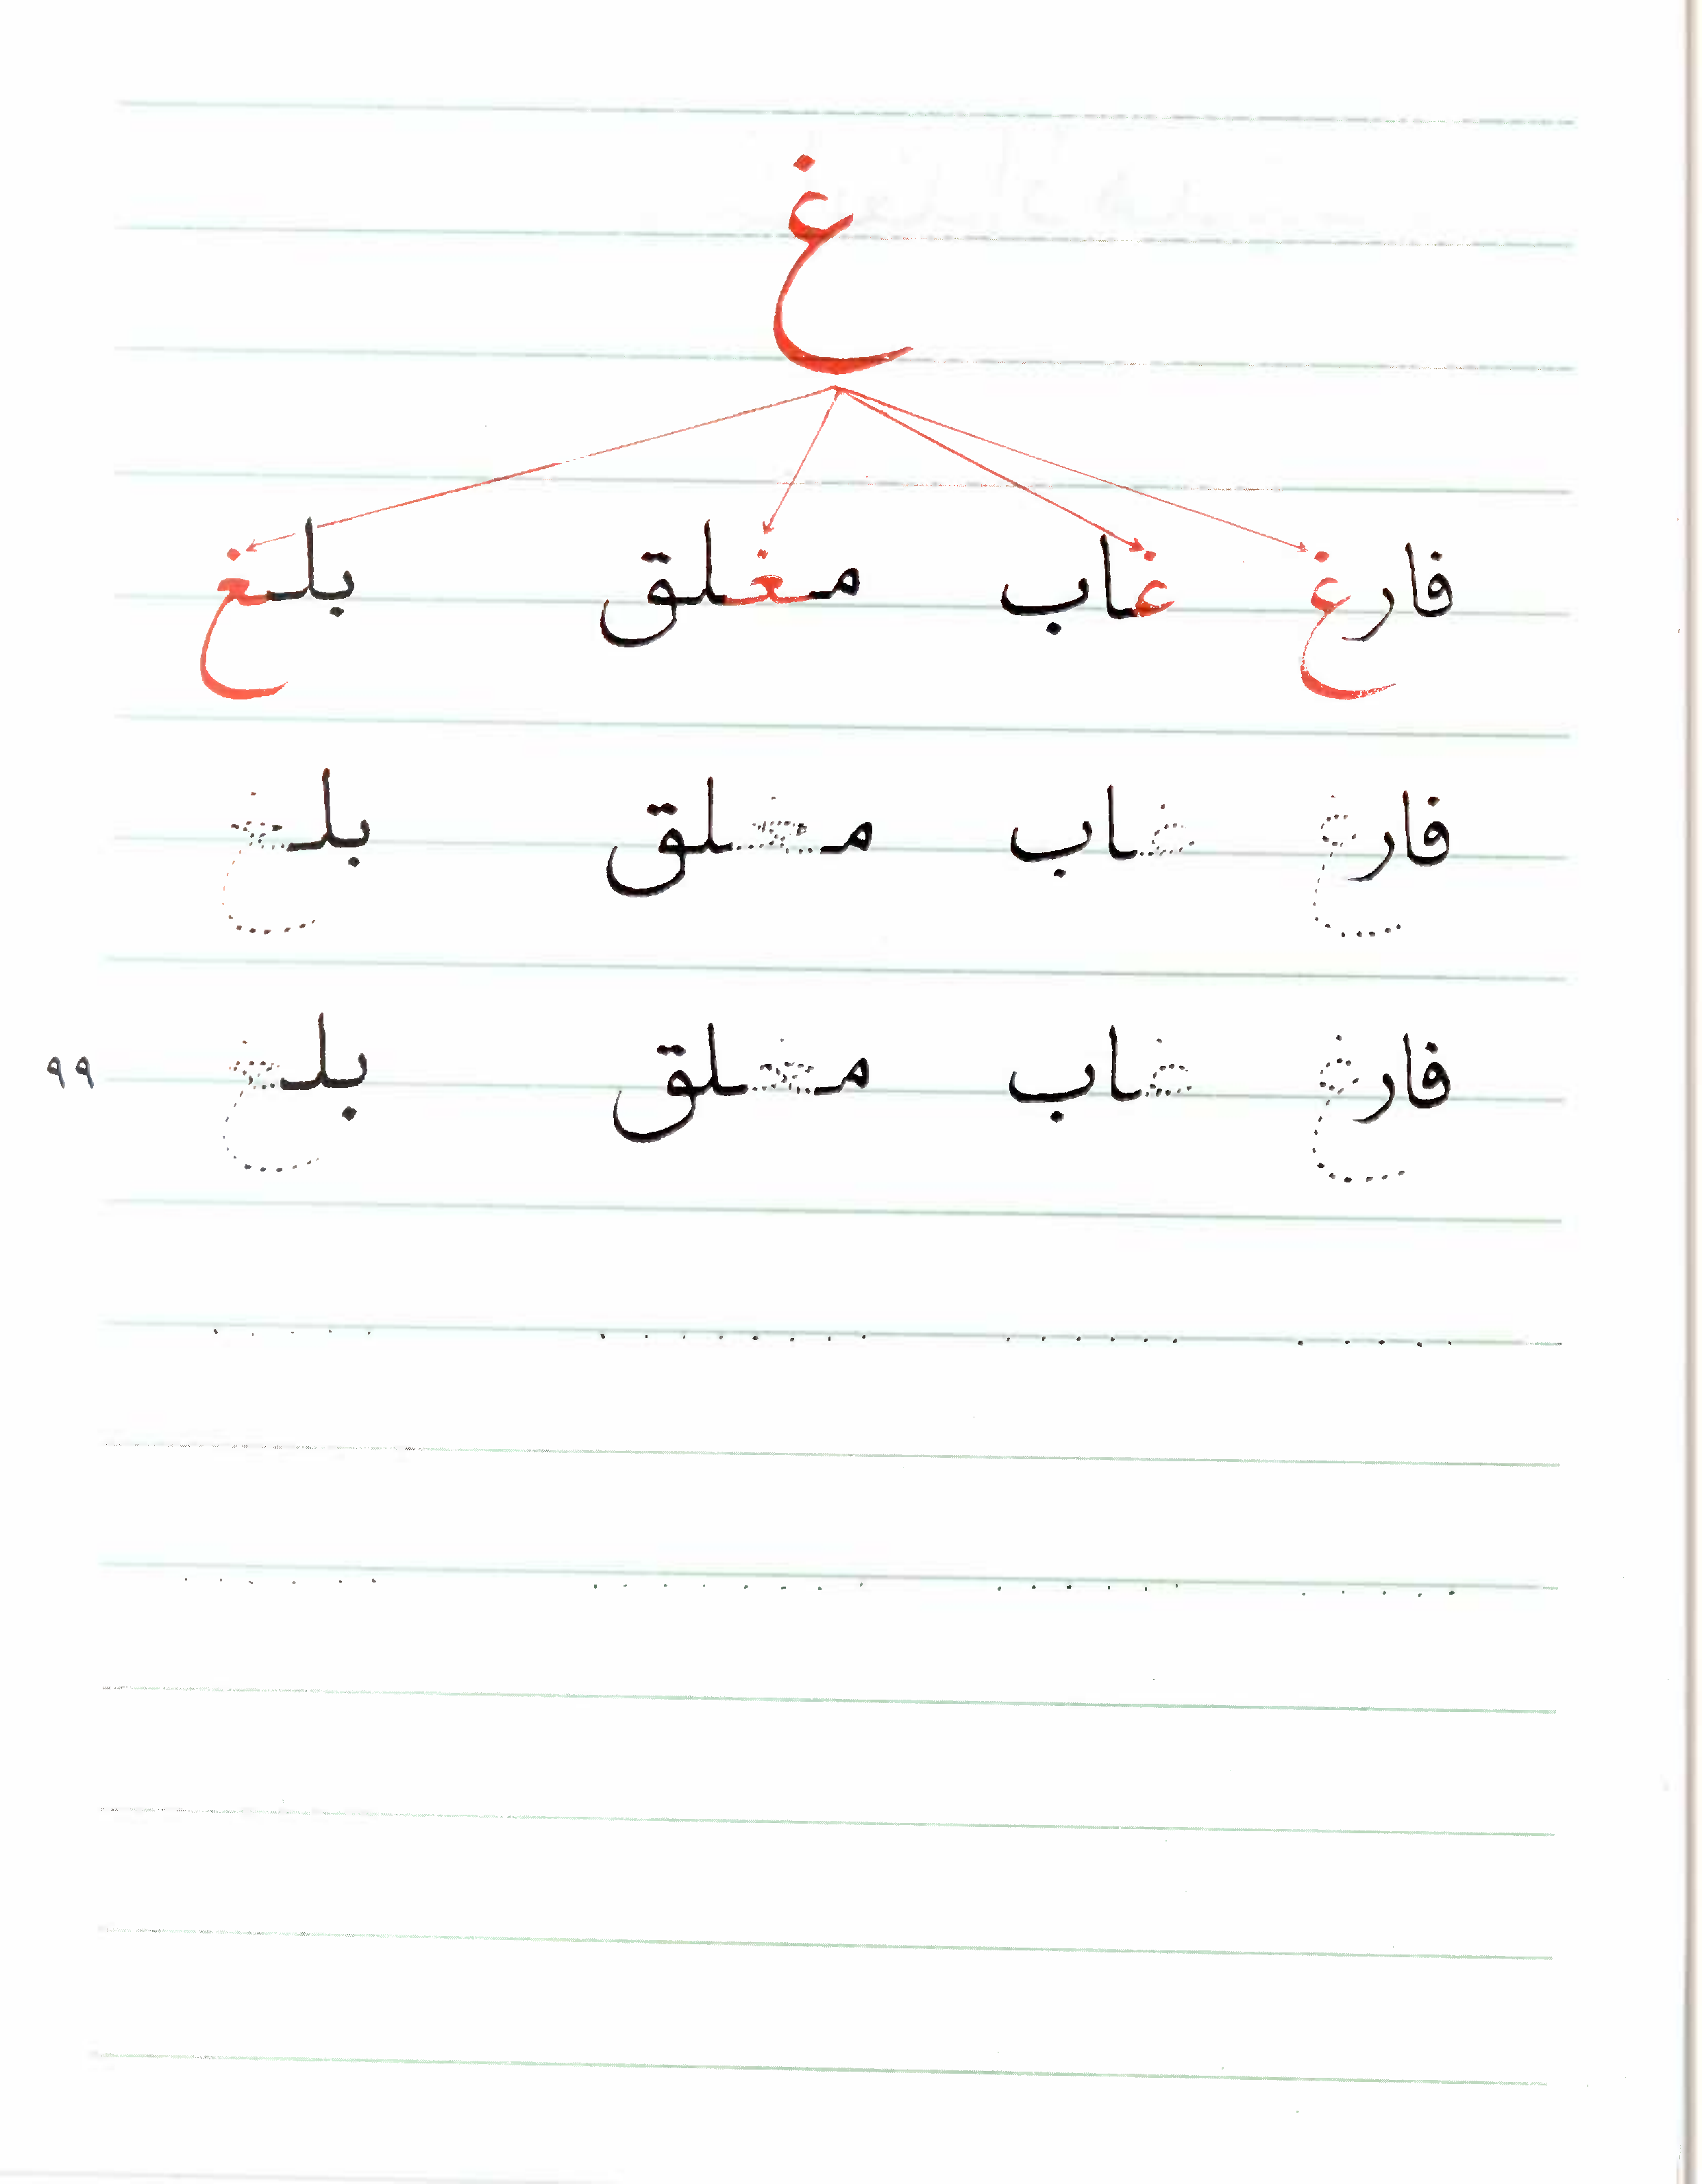 غ
فارغ غاب مغلق بلغ
فارغ غاب مغلق بلغ
فارغ غاب مغلق بلغ
٩٩